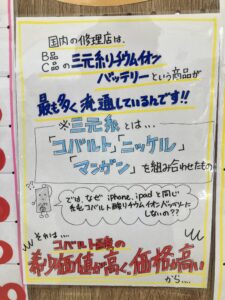 国内の修理店は、
B品
C品の三元系リチウムイオン
バッテリーという商品が
最も多く流通しているんです!!
※三元系とは...
「コバルト」「ニッケル」
「マンガン」を組み合わせたもの
では、なぜ iphone、ipadと同じ
コバルト酸リチウムイオンバッテリーに
しないの??
それは....
コバルト自体の
希少価値が高く、価格が高い
から....